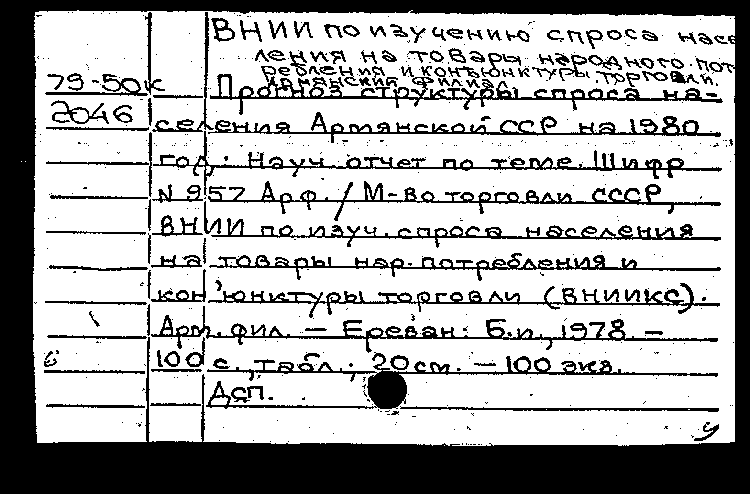 ВНИИ по изучению спроса насе
ления на товары народного пот
ребления и конъюнктуры торговли.
Армянский филиал
79-50к Прогноз структуры спроса на-
2046 селения Армянской ССР на 1980
год: Науч. отчет по теме. Шифр
N 957 Арф. / М-во торговли СССР,
ВНИИ по изуч. спроса населения
на товары нар. потребления и
кон'юнктуры торговли (ВНИИКС).
Арм. фил. — Ереван: Б.и., 1978. —
100 с., табл.; 20 см. — 100 экз.
Дсп.